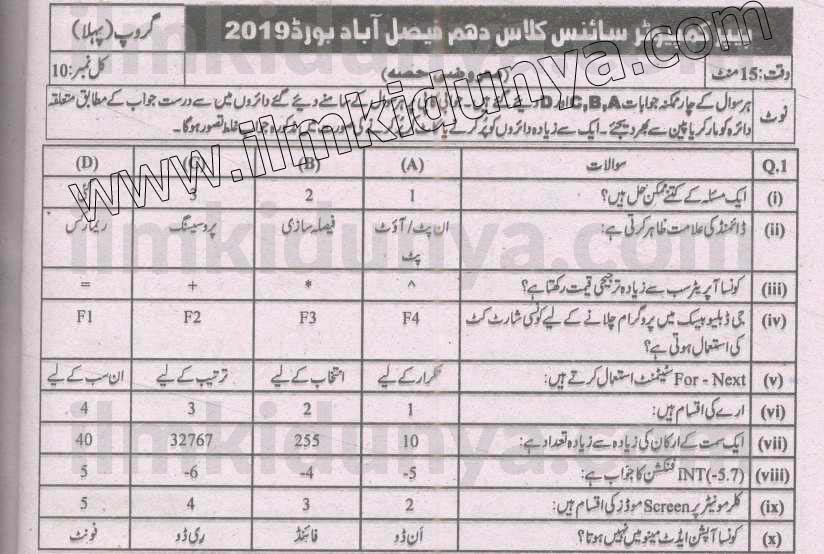 پیپر کمپیوٹر سائنس کلاس دہم فیصل آباد بورڈ 2019 گروپ (پہلا)
وقت: 15 منٹ (معروضی حصہ) کل نمبر: 10
نوٹ ہر سوال کے چار ممکنہ جوابات C,B,A اور D دیئے گئے ہیں۔ جوابی کاپی پر ہر سوال کے سامنے دیئے گئے دائروں میں سے درست جواب کے مطابق متعلقہ
دائرہ کو مارکر یا پین سے بھر دیجئے۔ ایک سے زیادہ دائروں کو پُر کرنے یا کاٹ کر پُر کرنے کی صورت میں مذکورہ جواب غلط تصور ہوگا۔
Q.1 سوالات (A) (B) (C) (D)
(i) ایک مسئلہ کے کتنے ممکن حل ہیں؟ 1 2 3
(ii) ڈائمنڈ کی علامت ظاہر کرتی ہے: ان پٹ/ آؤٹ پٹ فیصلہ سازی پروسیسنگ ریمارکس
(iii) کونسا آپریٹر سب سے زیادہ ترجیحی قیمت رکھتا ہے؟ ^ * + =
(iv) جی ڈبلیو بیسک میں پروگرام چلانے کے لیے کونسی شارٹ کٹ F4 F3 F2 F1
کی استعمال ہوتی ہے؟
(v) For - Next سٹیٹمنٹ استعمال کرتے ہیں: تکرار کے لیے انتخاب کے لیے ترتیب کے لیے ان سب کے لیے
(vi) ارے کی اقسام ہیں: 1 2 3 4
(vii) ایک سمت کے ارکان کی زیادہ سے زیادہ تعداد ہے: 10 255 32767 40
(viii) INT(-5.7) فنکشن کا جواب ہے: -5 -4 -6 5
(ix) کلر مونیٹر پر Screen موڈز کی اقسام ہیں: 2 3 4 5
(x) کونسا آپشن ایڈٹ مینو میں نہیں ہوتا؟ اَن ڈو فائنڈ ری ڈو فونٹ
www.ilmkidunya.com
ilmkidunya.com
ilmkidunya.com
ilmkidunya.com